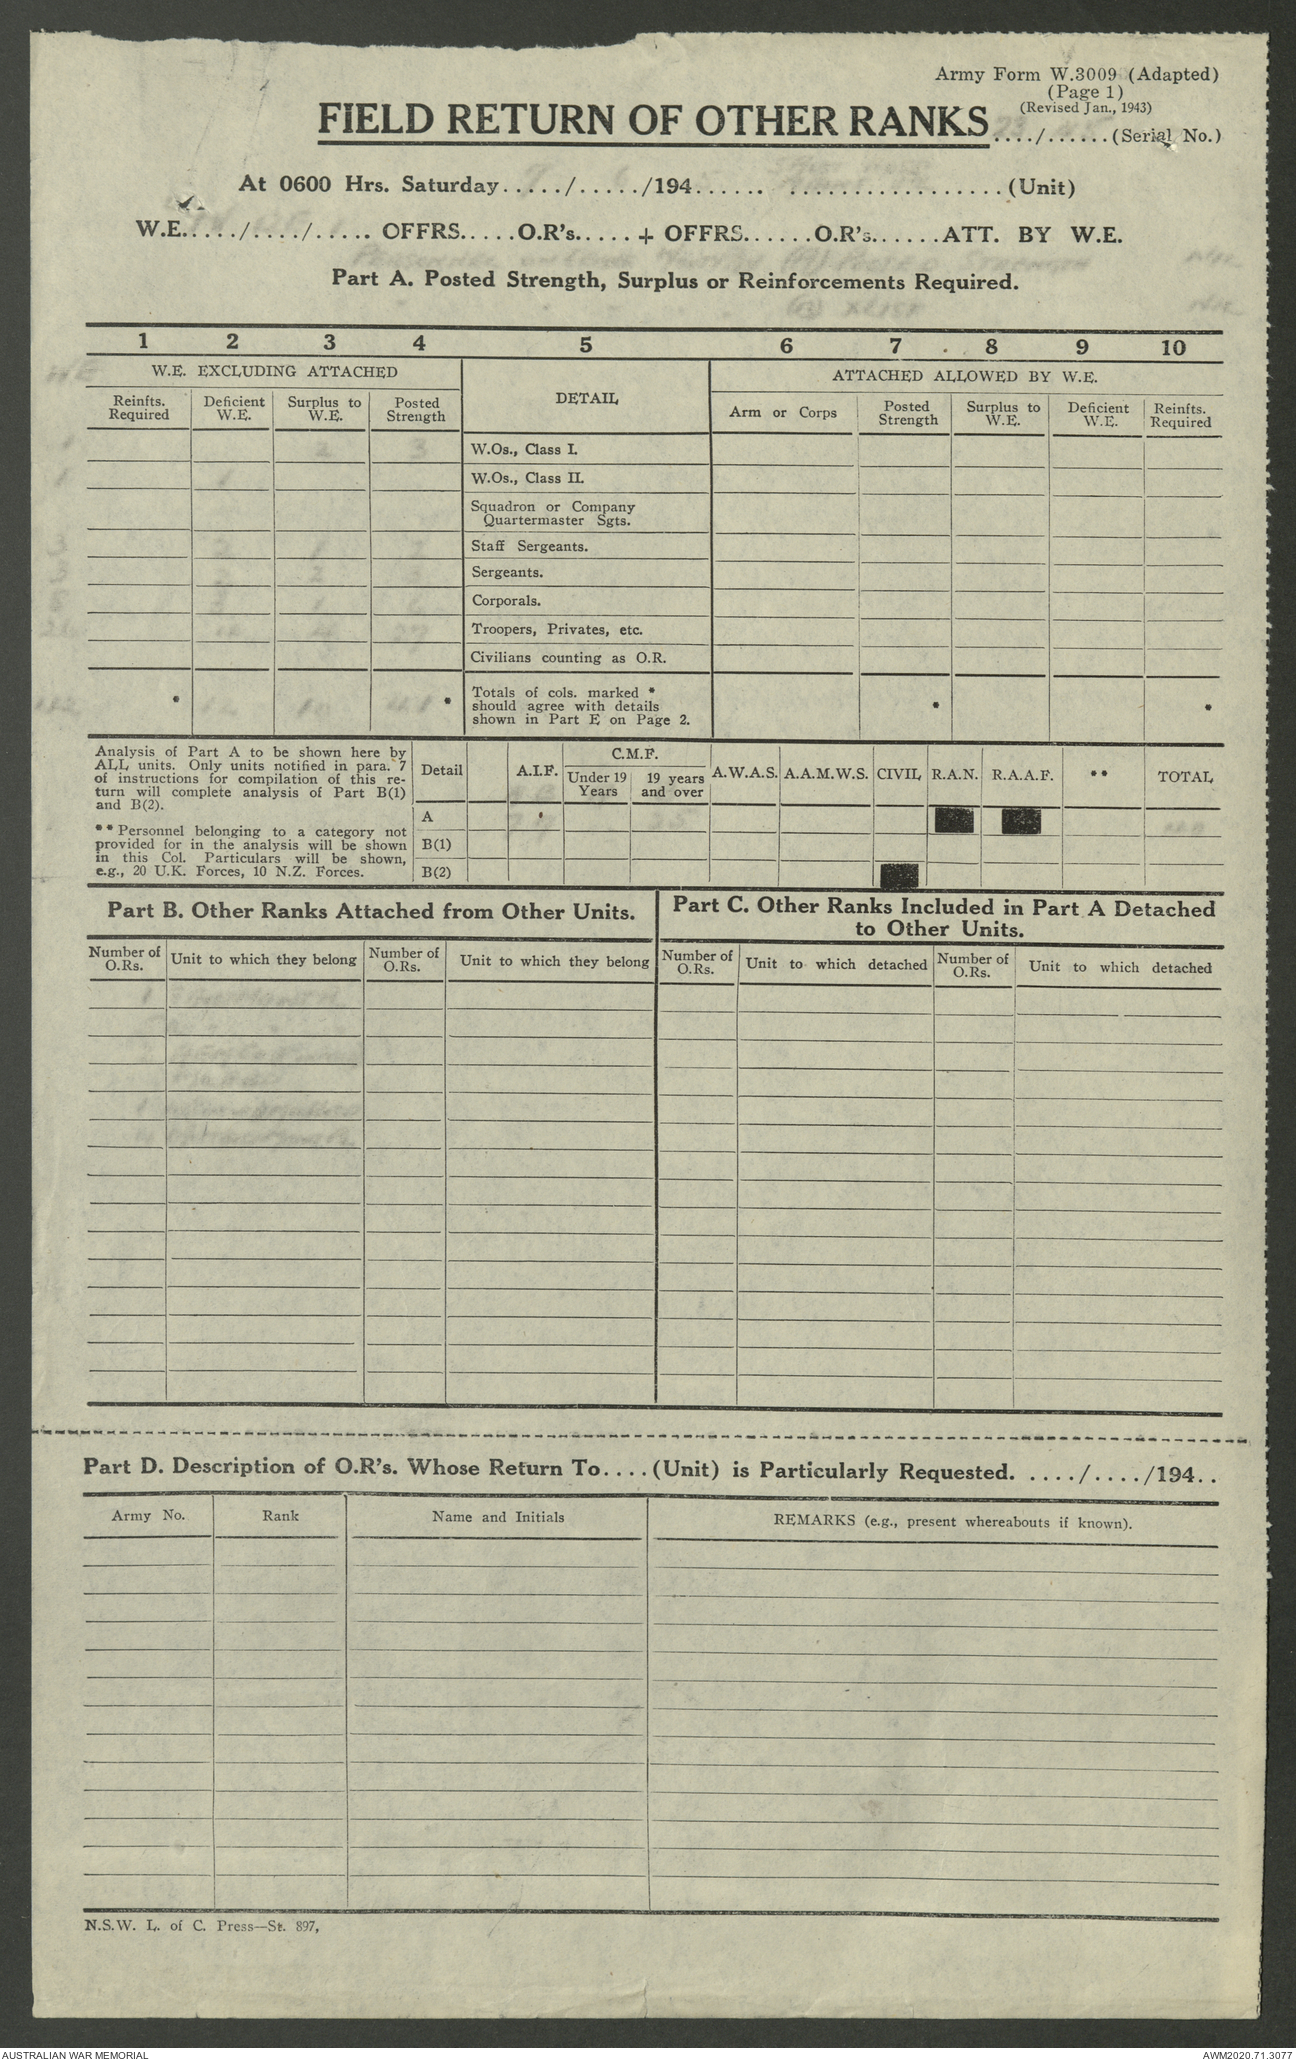 Army Form W.3009 (Adapted)
(Page 1)
(Revised Jan., 1943)
FIELD RETURN OF OTHER RANKS ..../......(Serial No.)
At 0600 Hrs. Saturday...../...../194...... .................(Unit)
W.E...../..../..... OFFRS.....O.R's..... + OFFRS......O.R's......ATT. BY W.E.
PERSONNEL POSTED STRENGTH
Part A. Posted Strength, Surplus or Reinforcements Required.
1 2 3 4 5 6 7 8 9 10
W.E. EXCLUDING ATTACHED DETAIL ATTACHED ALLOWED BY W.E.
Reinfts. Required Deficient W.E. Surplus to W.E. Posted Strength Arm or Corps Posted Strength Surplus to W.E. Deficient W.E. Reinfts. Required
2 3 W.Os., Class I.
1 W.Os., Class II.
Squadron or Company
Quartermaster Sgts.
Staff Sergeants.
Sergeants.
Corporals.
27 Troopers, Privates, etc.
Civilians counting as O.R.
* 12 10 41 * Totals of cols. marked * * *
should agree with details
shown in Part E on Page 2.
Analysis of Part A to be shown here by
ALL units. Only units notified in para. 7
of instructions for compilation of this re-
turn will complete analysis of Part B(1)
and B(2).
** Personnel belonging to a category not
provided for in the analysis will be shown
in this Col. Particulars will be shown,
e.g., 20 U.K. Forces, 10 N.Z. Forces.
Detail A.I.F. C.M.F. A.W.A.S. A.A.M.W.S. CIVIL R.A.N. R.A.A.F. ** TOTAL
Under 19 Years 19 years and over
A
B(1)
B(2)
Part B. Other Ranks Attached from Other Units.
Part C. Other Ranks Included in Part A Detached
to Other Units.
Number of O.Rs. Unit to which they belong Number of O.Rs. Unit to which they belong Number of O.Rs. Unit to which detached Number of O.Rs. Unit to which detached
Part D. Description of O.R's. Whose Return To....(Unit) is Particularly Requested. ..../..../194..
Army No. Rank Name and Initials REMARKS (e.g., present whereabouts if known).
N.S.W. L. of C. Press—St. 897,
AUSTRALIAN WAR MEMORIAL AWM2020.71.3077